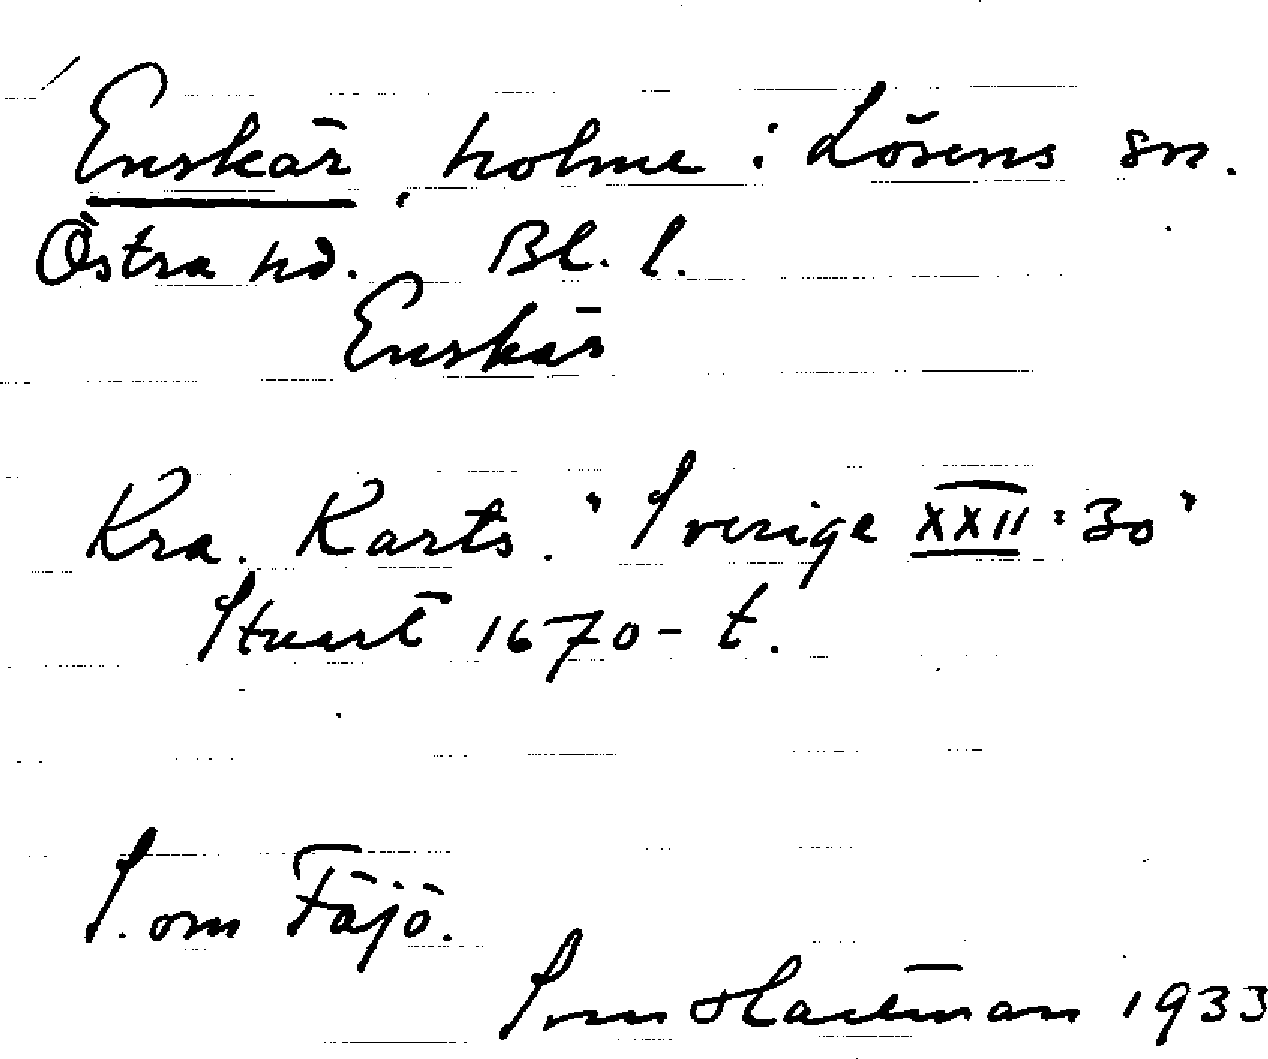 Enskär, holme i Lösens sn.
Östra hd. Bl. l.
Enskär
Kra. Karts. "Sverige XXII:30"
Stuart 1670-t.
S. om Fäjö.
Sven Hartman 1933